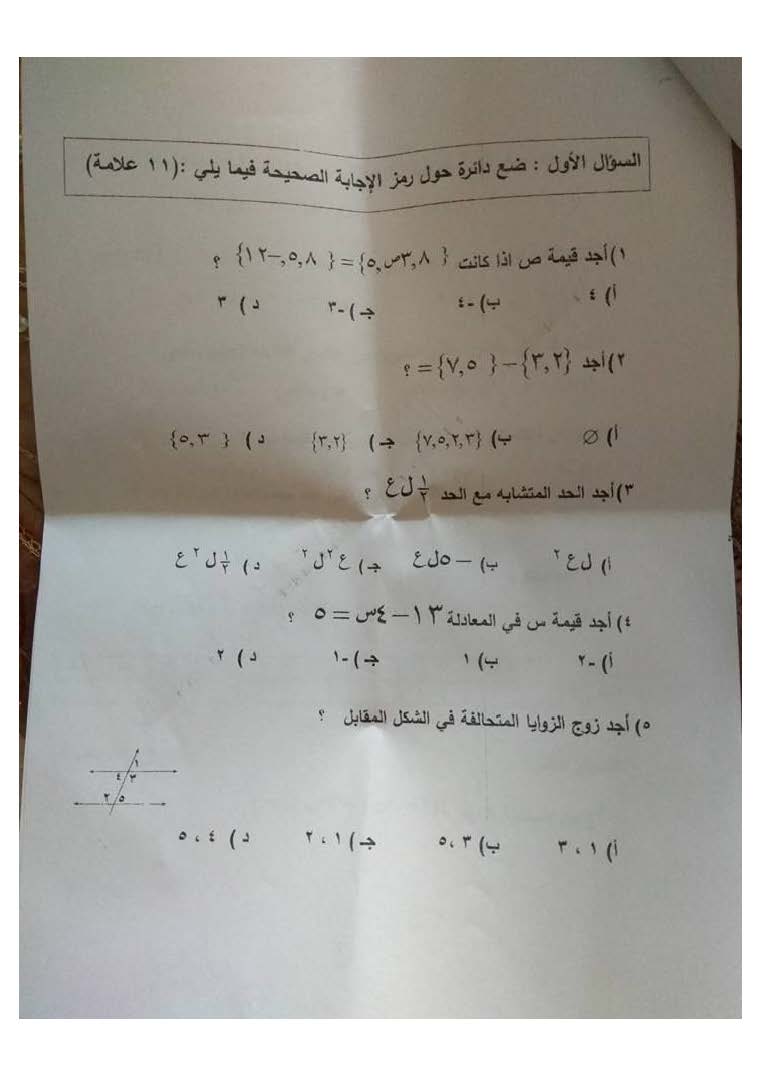 السؤال الأول : ضع دائرة حول رمز الإجابة الصحيحة فيما يلي :(١١ علامة)
١)أجد قيمة ص اذا كانت { ٨,٣ص,٥} = { ٨,٥,-١٢} ؟
أ) ٤ ب) -٤ جـ) -٣ د) ٣
٢)أجد {٣,٢} – { ٧,٥} = ؟
أ) ∅ ب) {٧,٥,٢,٣} جـ) {٣,٢} د) { ٥,٣}
٣)أجد الحد المتشابه مع الحد ١/٢ ل ع ؟
أ) ل ع ٢ ب) – ٥ ل ع جـ) ع ٢ ل ٢ د) ١/٢ ل ٢ ع
٤) أجد قيمة س في المعادلة ١٣ – ٤س = ٥ ؟
أ) -٢ ب) ١ جـ) -١ د) ٢
٥) أجد زوج الزوايا المتحالفة في الشكل المقابل ؟
١
٤ ٣
٢ ٥
أ) ١ ، ٣ ب) ٣ ،٥ جـ) ١ ، ٢ د) ٤ ، ٥